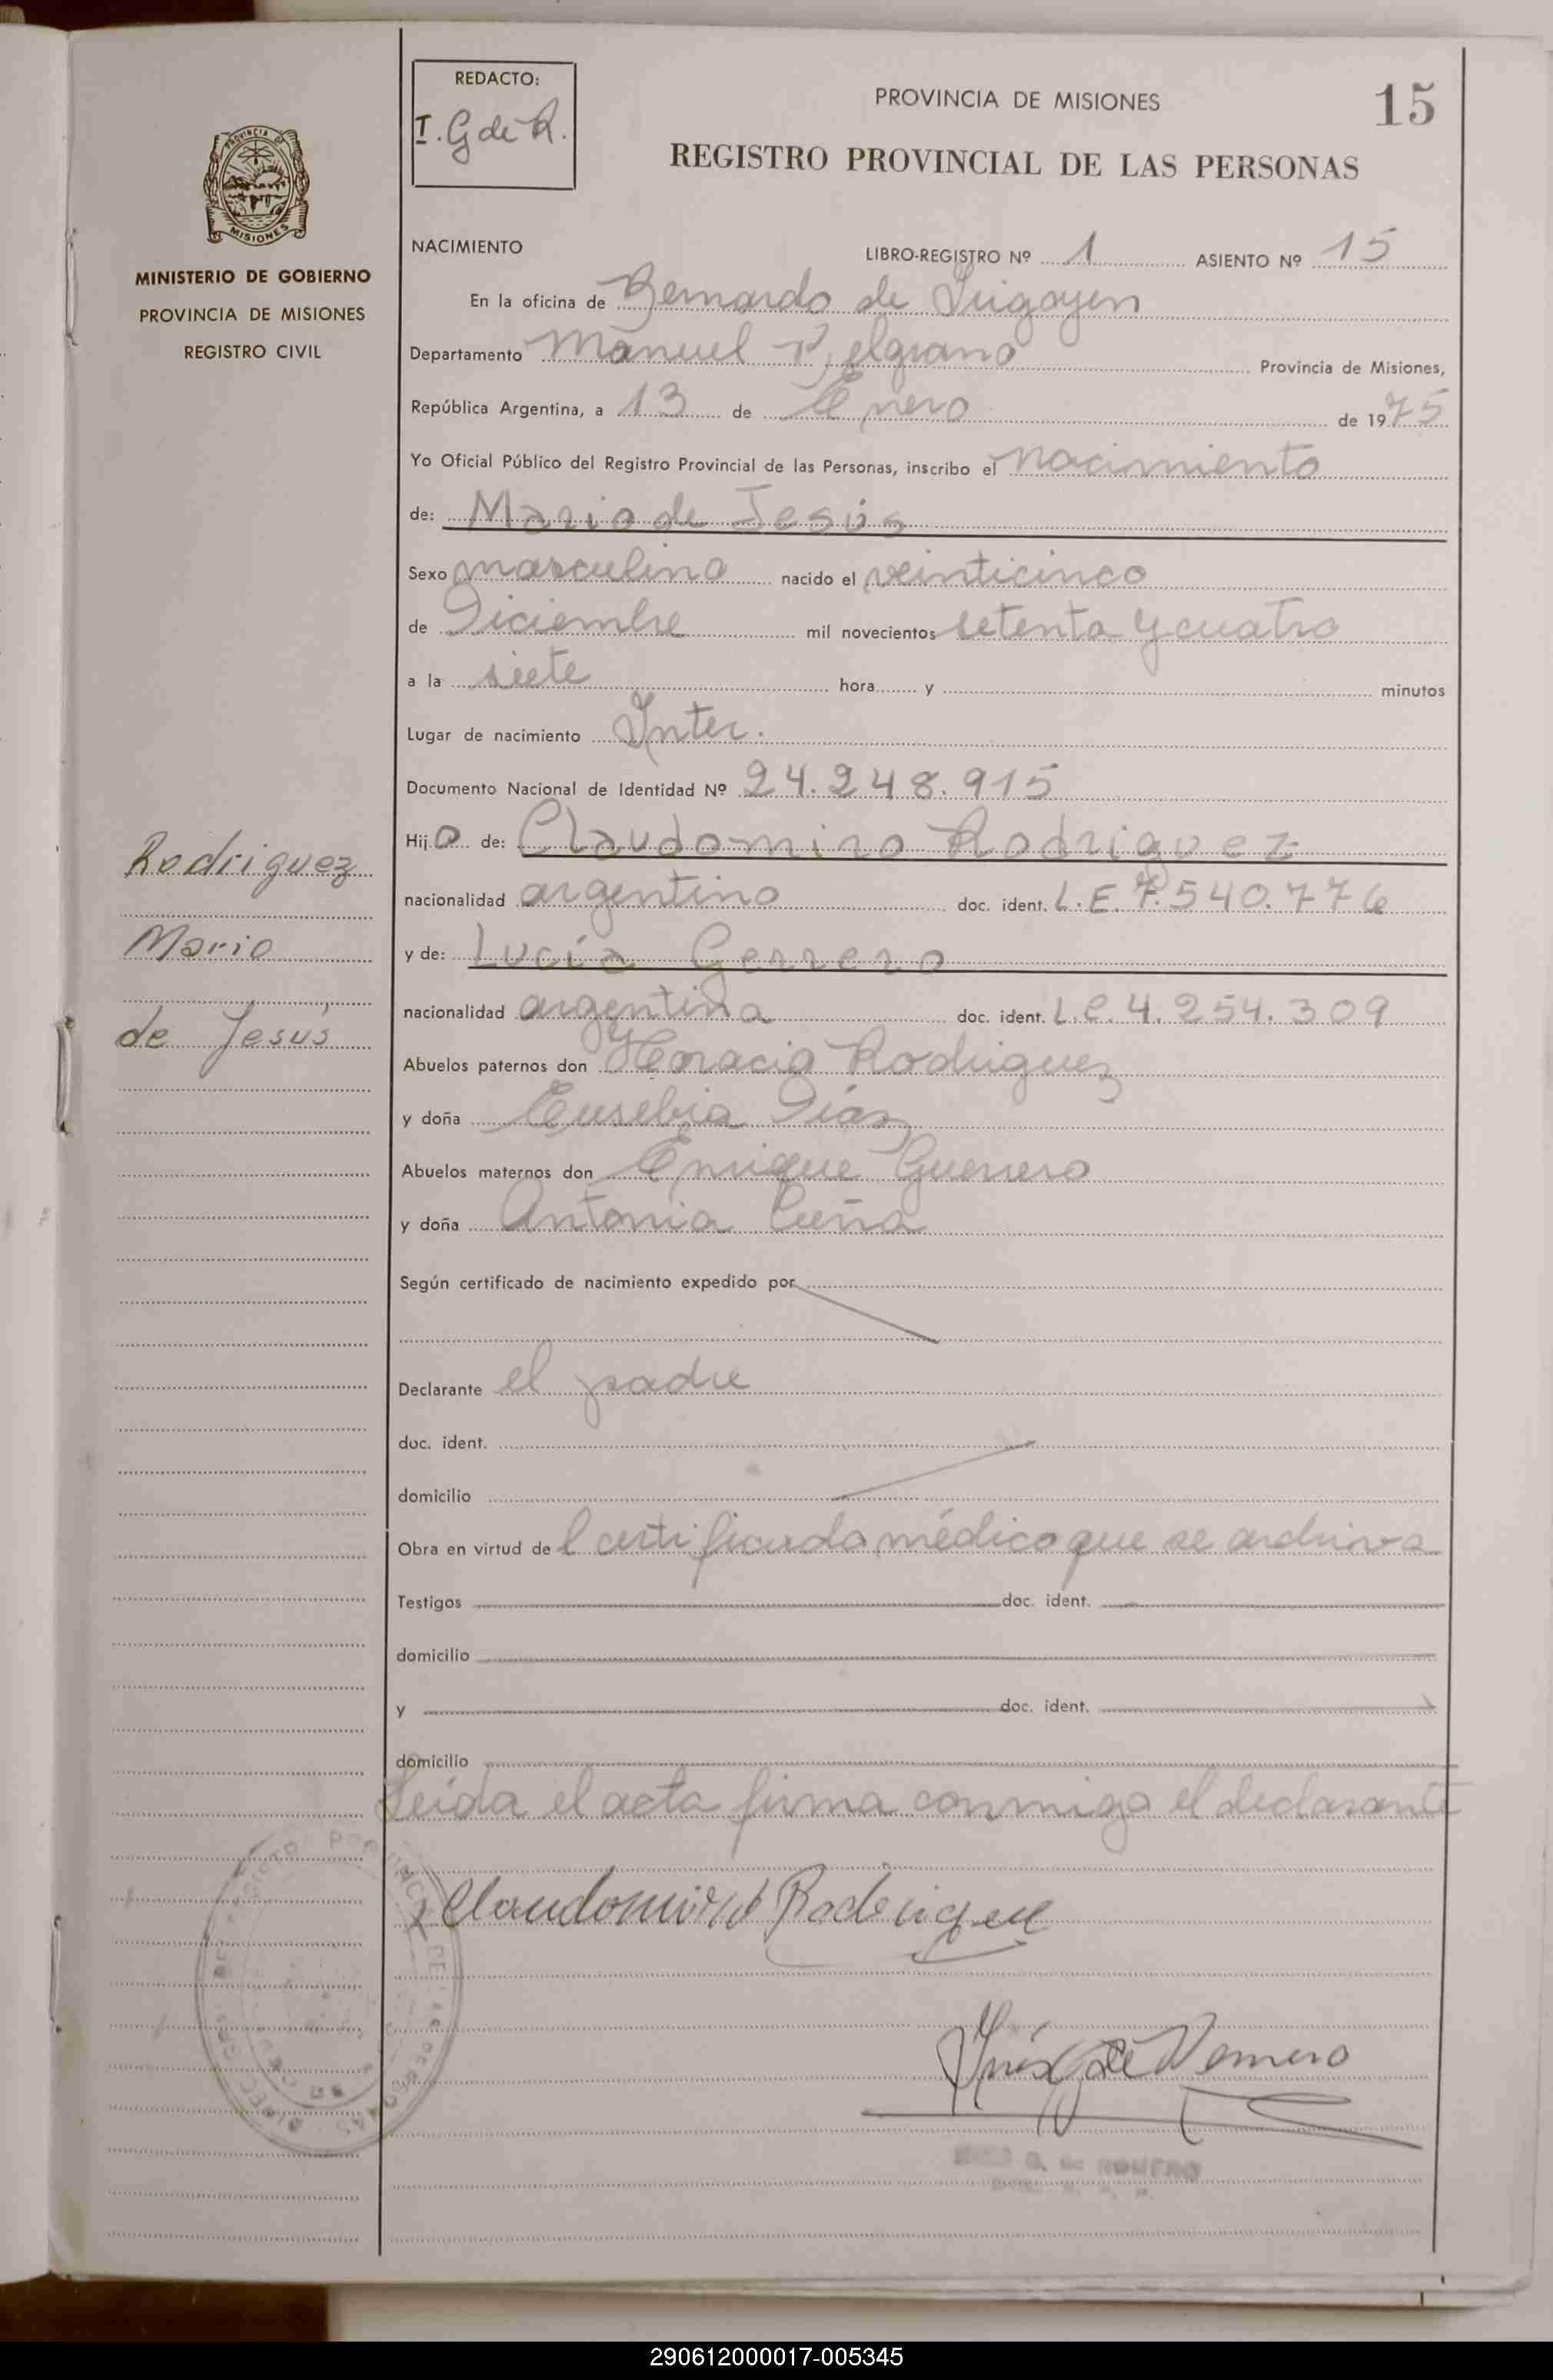 REDACTO:
I. G de R.
PROVINCIA DE MISIONES
15
REGISTRO PROVINCIAL DE LAS PERSONAS
PROVINCIA DE
MISIONES
MINISTERIO DE GOBIERNO
PROVINCIA DE MISIONES
REGISTRO CIVIL
NACIMIENTO LIBRO-REGISTRO Nº 1 ASIENTO Nº 15
En la oficina de Bernardo de Irigoyen
Departamento Manuel Belgrano Provincia de Misiones,
República Argentina, a 13 de Enero de 1975
Yo Oficial Público del Registro Provincial de las Personas, inscribo el nacimiento
de: Mario de Jesús
Sexo masculino nacido el veinticinco
de Diciembre mil novecientos setenta y cuatro
a la siete hora y minutos
Lugar de nacimiento Inter.
Documento Nacional de Identidad Nº 24.248.915
Hijo de: Claudomiro Rodriguez
nacionalidad argentino doc. ident. L.E. 7.540.776
y de: Lucía Gerrero
nacionalidad argentina doc. ident. L.C. 4.254.309
Abuelos paternos don Horacio Rodriguez
y doña Eusebia Días
Abuelos maternos don Enrique Guerrero
y doña Antonia
Según certificado de nacimiento expedido por
Declarante el padre
doc. ident.
domicilio
Obra en virtud de l certificado médico que se archiva
Testigos doc. ident.
domicilio
y doc. ident.
domicilio
Leída el acta firma conmigo el declarante
Claudomiro Rodriguez
Inés G de Romero
DE ROMERO
Rodriguez
Mario
de Jesús
290612000017-005345